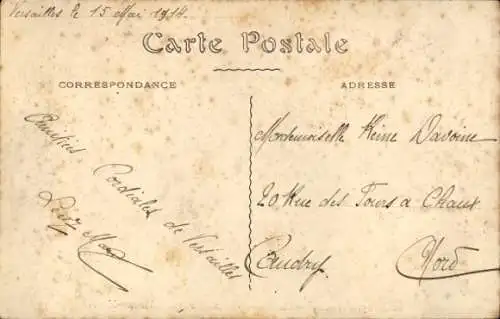 Versailles le 15 Mai 1914.
Carte Postale
CORRESPONDANCE
ADRESSE
Amitiés Cordiales de Versailles
Mademoiselle Reine Davoine
20 Rue des Fours à Chaux
Caudry
Nord